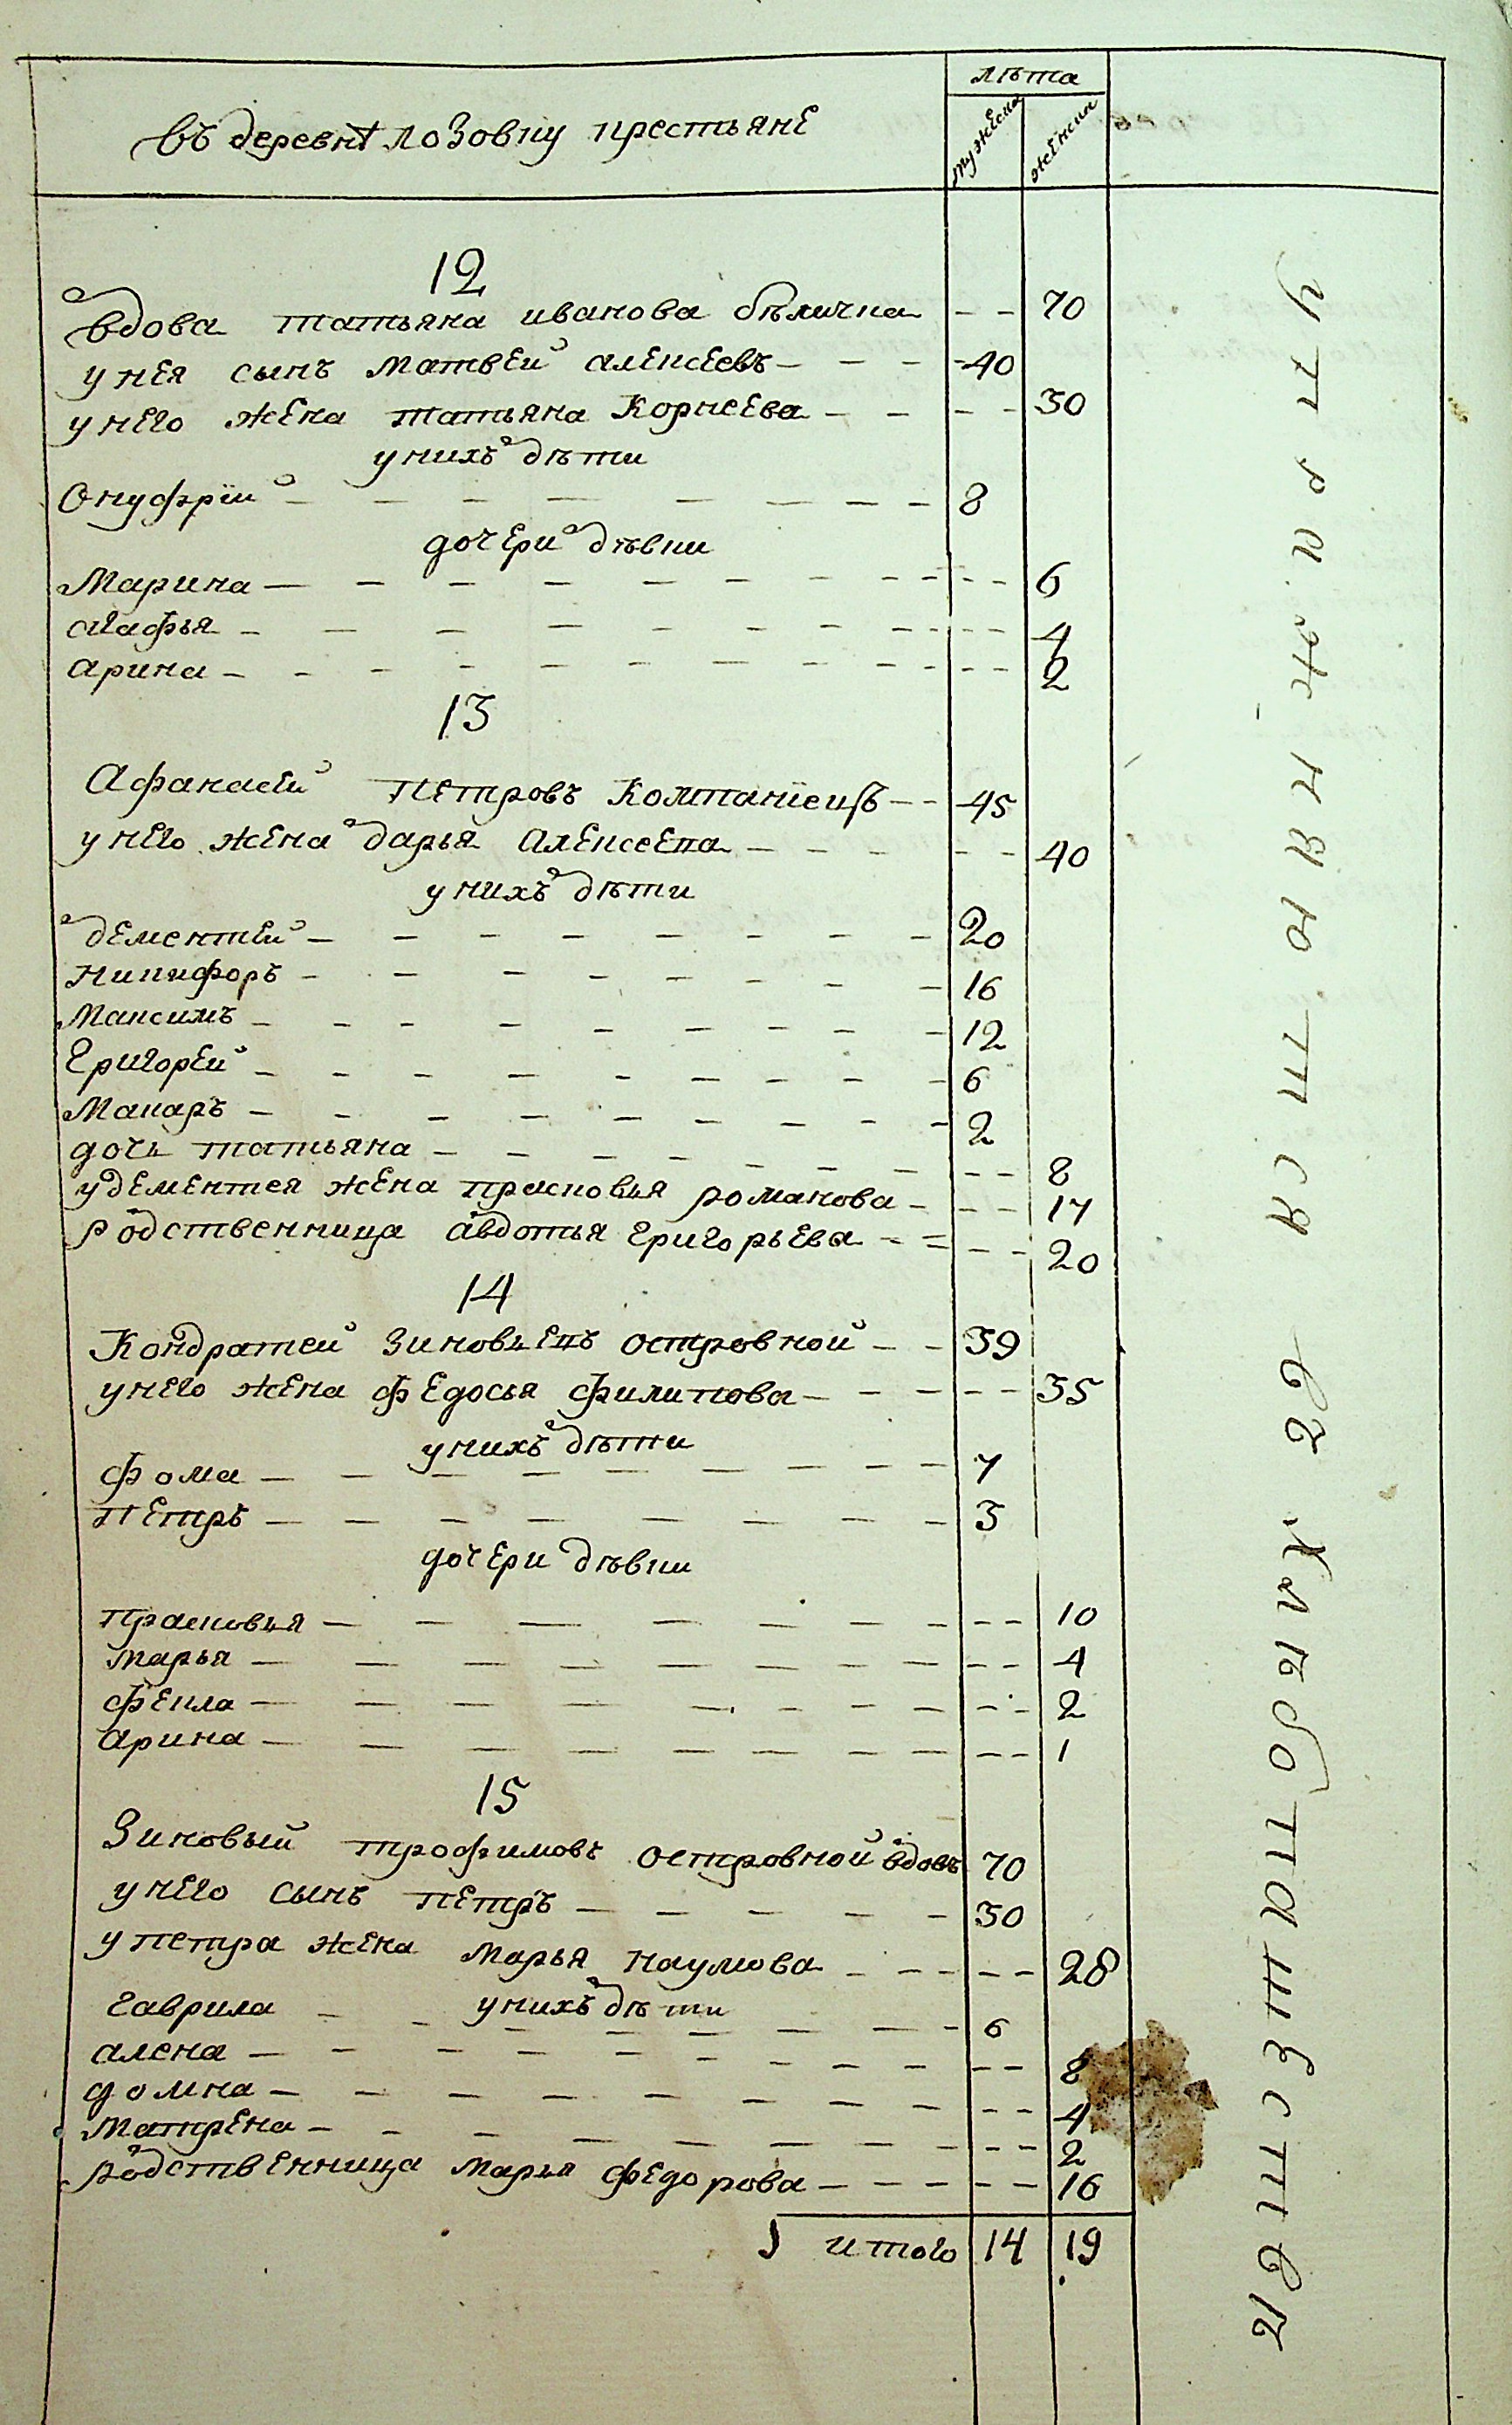 лѣта
въ деревнѣ лозовку крестьяне
мужеска
женски
12
вдова татьяна иванова бѣличка - - 70
у нея сынъ Матвей алексеевъ - - - - 40
у него жена татьяна Корнеева - - - - 30
у нихъ дѣти
Онуфрїй - - - - - - - - 8
дочери дѣвки
Марина - - - - - - - - - - - 6
агафья - - - - - - - - - - - 4
арина - - - - - - - - - - - 2
13
Афанасей Петровъ Компанїецъ - - 45
у него жена дарья Алексеева - - - - - - 40
у нихъ дѣти
дементей - - - - - - - - 20
Никифоръ - - - - - - - - 16
Максимъ - - - - - - - - - 12
Григорей - - - - - - - - - 6
Макаръ - - - - - - - - - 2
дочь татьяна - - - - - - - - - 8
у дементея жена прасковья романова - - - 17
родственница авдотья григорьева - - - - 20
14
Кондратей Зиновьевъ островной - - 39
у него жена федосья филипова - - - - - 35
у нихъ дѣти
фома - - - - - - - - - 7
петръ - - - - - - - - 3
дочери дѣвки
прасковья - - - - - - - - - 10
марья - - - - - - - - - - - 4
фекла - - - - - - - - - - 2
арина - - - - - - - - - - - 1
15
Зиновый трофимовъ островной вдовъ 70
у него сынъ петръ - - - - - 30
у петра жена марья наумова - - - - - 28
у нихъ дѣти
гаврила - - - - - - - - 6
алена - - - - - - - - - - - 8
домна - - - - - - - - - - - 4
матрена - - - - - - - - - - 2
родственница марья федорова - - - - - 16
итого 14 19